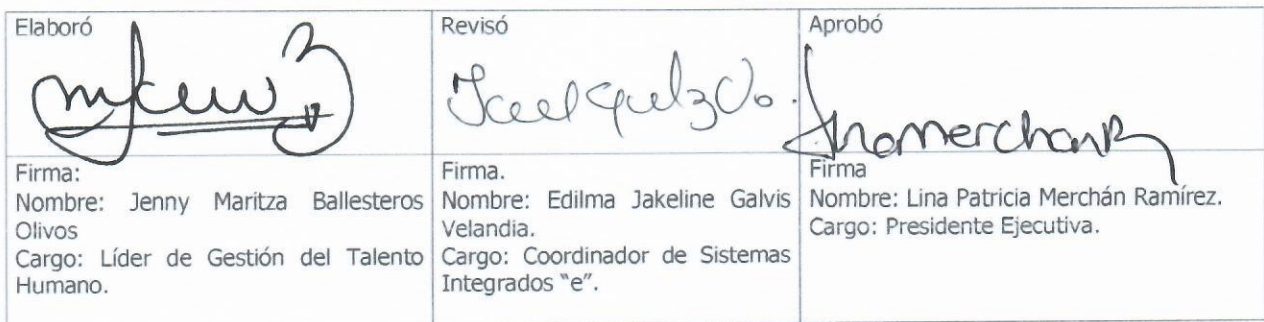 Elaboró
Firma:
Nombre: Jenny Maritza Ballesteros
Olivos
Cargo: Líder de Gestión del Talento
Humano.
Revisó
Firma.
Nombre: Edilma Jakeline Galvis
Velandia.
Cargo: Coordinador de Sistemas
Integrados "e".
Aprobó
Firma
Nombre: Lina Patricia Merchán Ramírez.
Cargo: Presidente Ejecutiva.